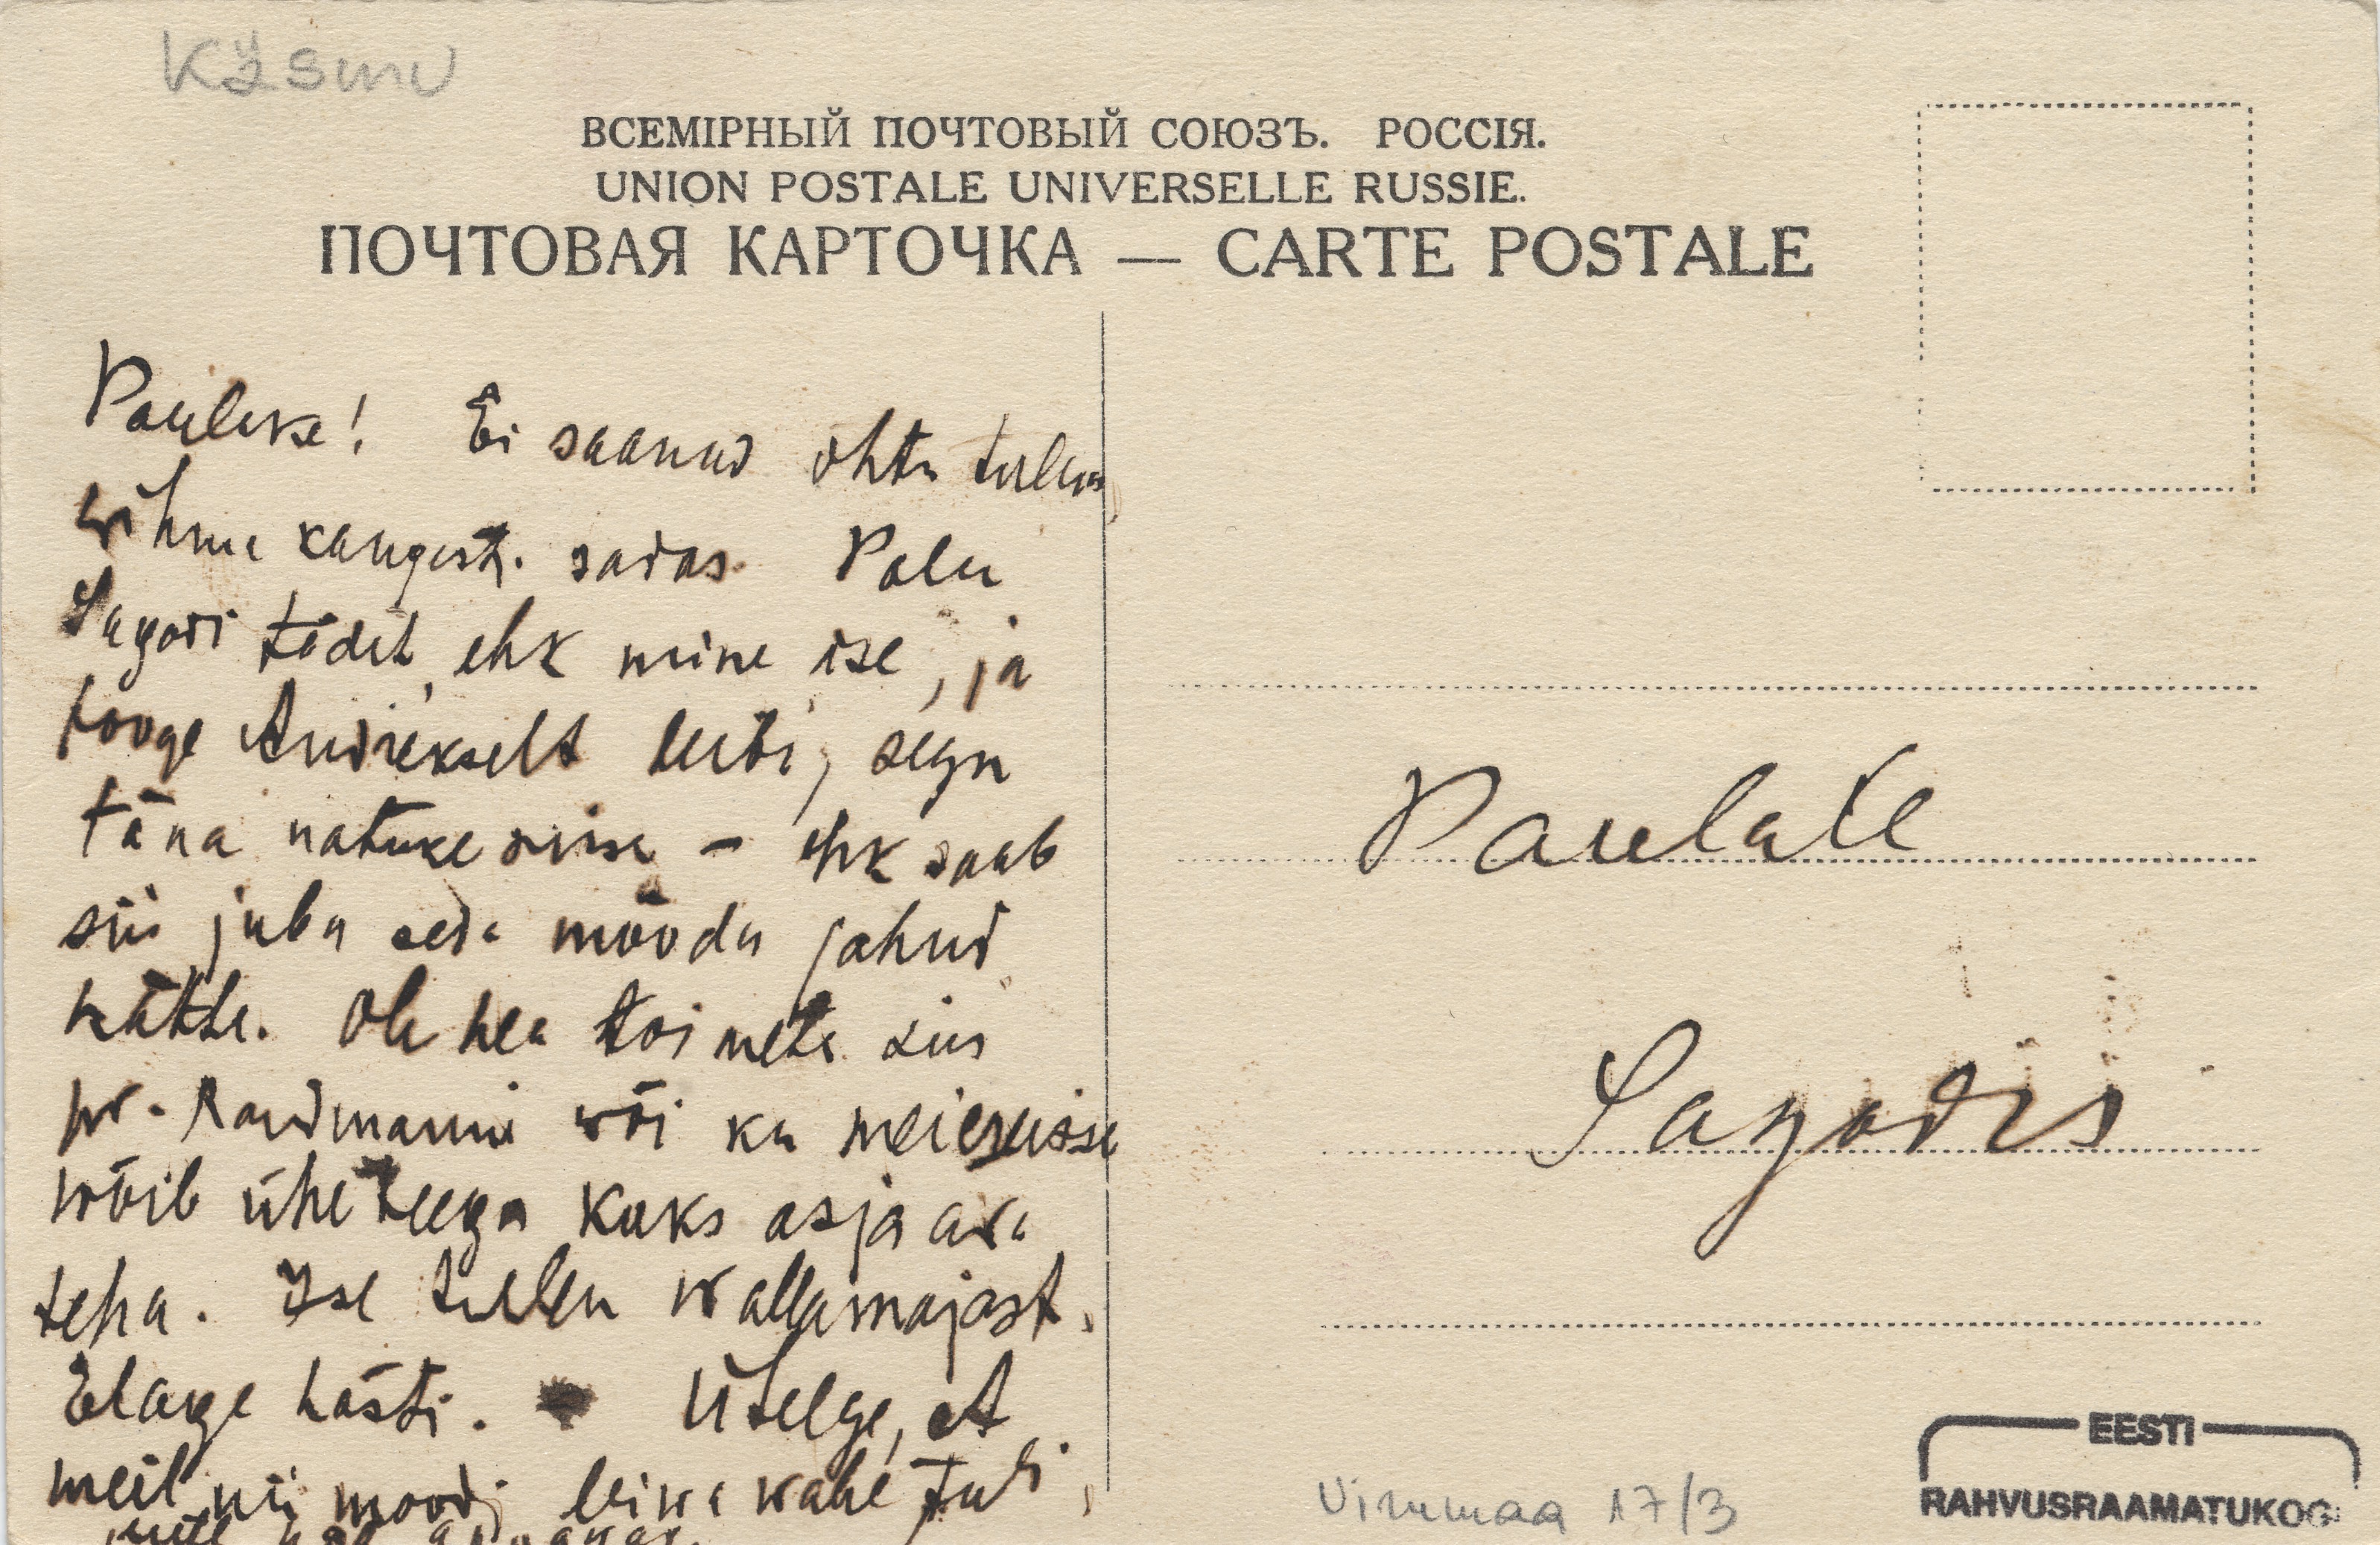 Käsmu
ВСЕМІРНЫЙ ПОЧТОВЫЙ СОЮЗЪ. РОССІЯ.
UNION POSTALE UNIVERSELLE RUSSIE.
ПОЧТОВАЯ КАРТОЧКА — CARTE POSTALE
Pauleke! Ei saanud õhtu tulla
wihma kangesti sadas. Palu
Sagadi tädit, ehk mine ise, ja
tooge Andrekselt leiba, segu
täna natuke sisse – ehk saab
siis juba seda mööda jahud
kätte. Ole hea toimeta siis
pr. Randmanni wõi ka meiereisse
wõib ühe teega kaks asja ära
teha. Ise tulen wallamajast.
Elage hästi. Ütelge, et
meil nii moodi leiwa wahe tuli,
Paulale
Sagadis
Virumaa 17/3
EESTI
RAHVUSRAAMATUKOGU